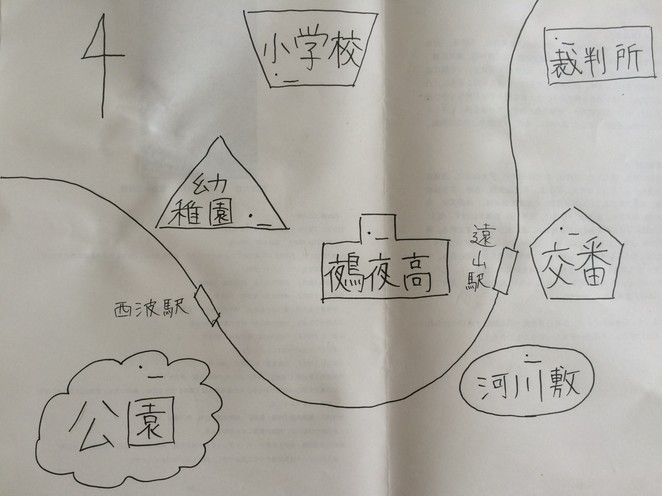 小学校
裁判所
幼
稚園
鵺夜高
遠山駅
交番
西波駅
河川敷
公園